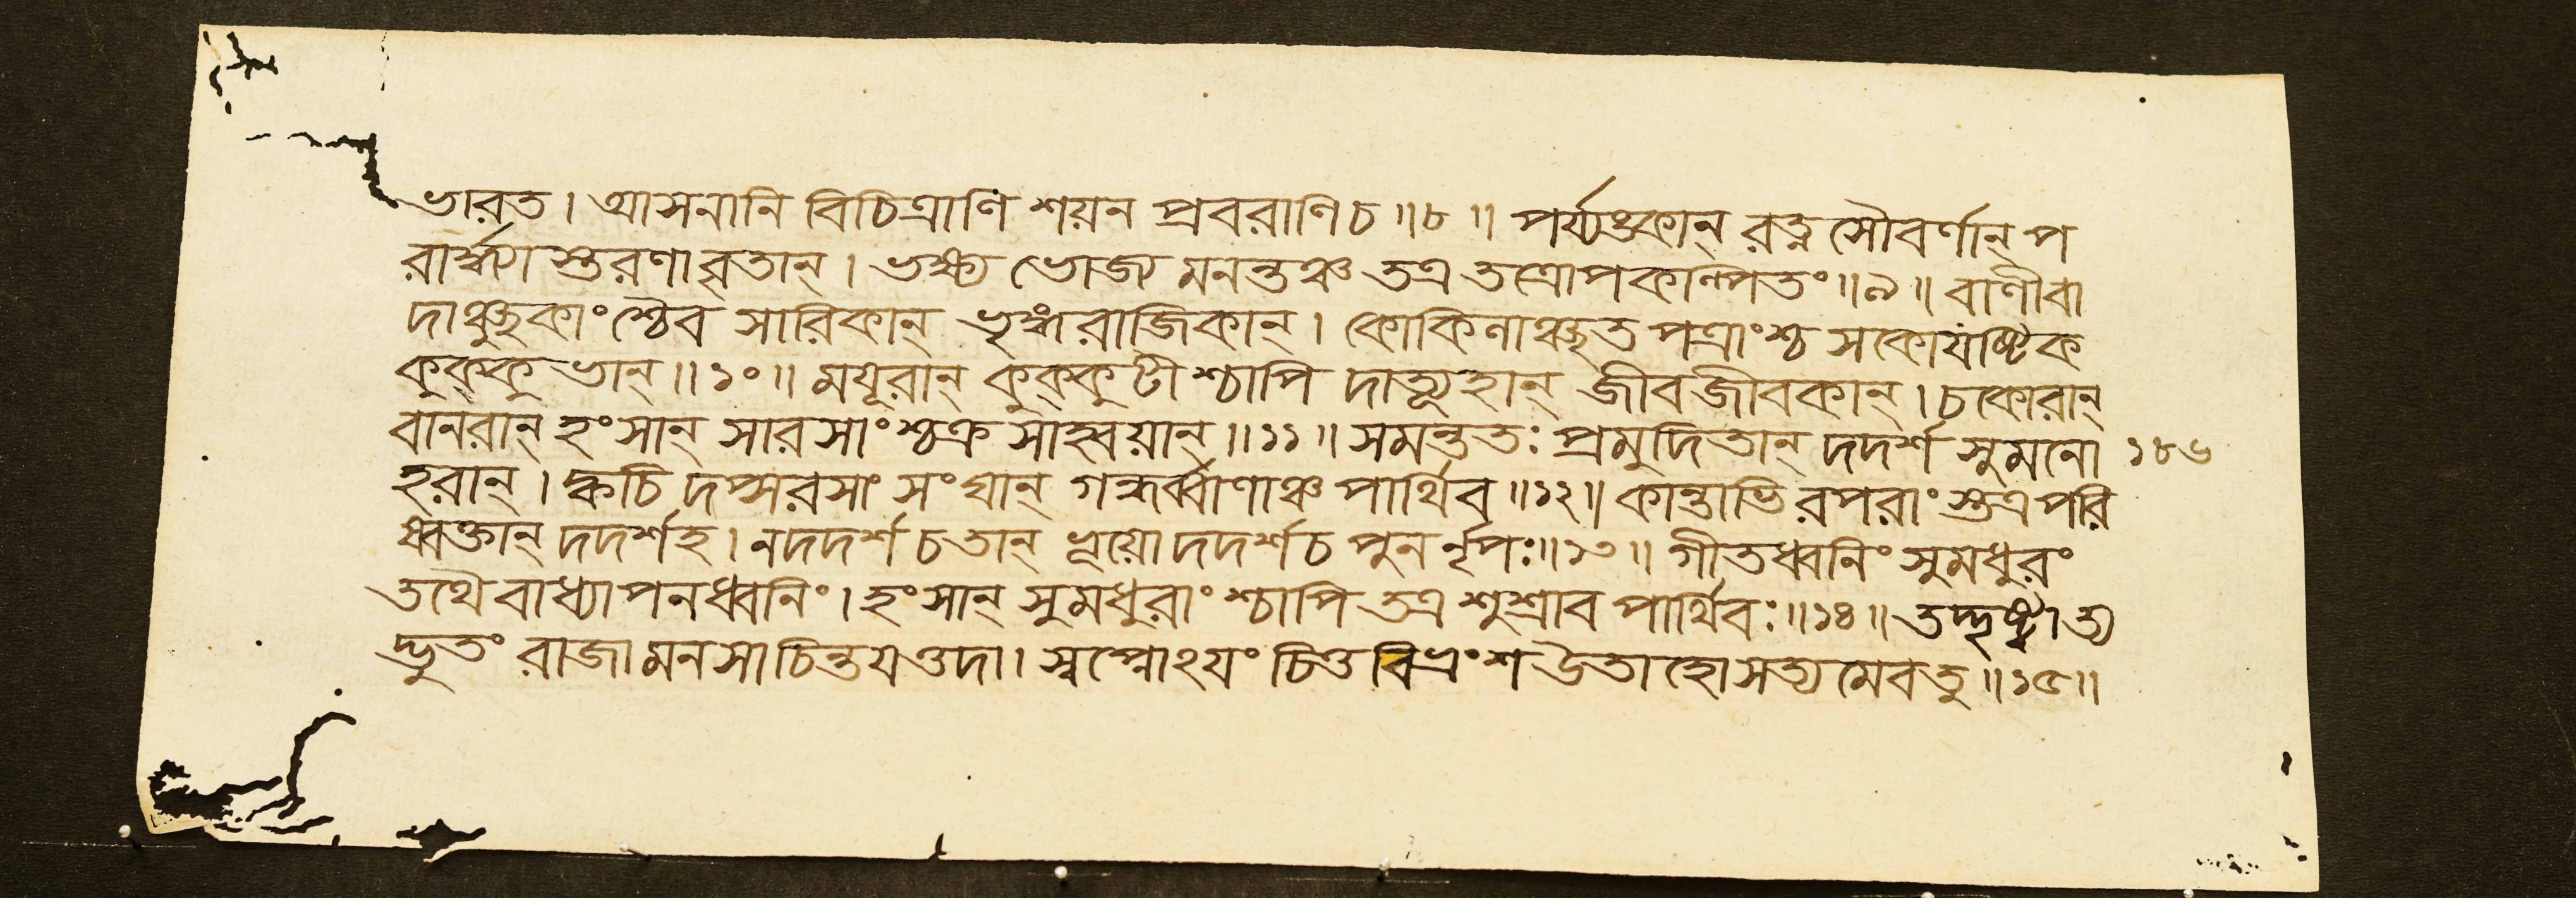 ভারত । আসনানি বিচিত্রাণি শয়ন প্রবরাণি চ ॥৮॥ পর্য্যঙ্কান্ রত্ন সৌবর্ণান্ প
রার্দ্ধ্যা স্তরণাবৃতান্ । ভক্ষ্য ভোজ্য মনন্তঞ্চ তত্র তত্রোপকল্পিতং ॥৯॥ বাণীবা
দাঞ্ছুকাংশ্চৈব সারিকান্ ভৃঙ্গরাজিকান্ । কোকিলাঞ্ছত পত্রাংশ্চ সকোযষ্টিক
কুক্কুভান্ ॥১০॥ ময়ূরান্ কুক্কুটাশ্চাপি দাত্যূহান্ জীবজীবকান্ । চকোরান্
বানরান্ হংসান্ সারসাংশ্চক্র সাহ্বয়ান্ ॥১১॥ সমন্ততঃ প্রমুদিতান্ দদর্শ সুমনো ১৮৬
হরান্ । ক্বচি দপ্সরসাং সংঘান্ গন্ধর্ব্বাণাঞ্চ পার্থিব ॥১২॥ কান্তাভি রপরাং স্তত্র পরি
ষ্বক্তান্ দদর্শহ । নদদর্শ চ তান্ ভূয়ো দদর্শ চ পুন র্নৃপঃ ॥১৩॥ গীতধ্বনিং সুমধুরং
তথৈবাধ্যাপনধ্বনিং । হংসান্ সুমধুরাংশ্চাপি তত্র শুশ্রাব পার্থিবঃ ॥১৪॥ তদ্দৃষ্ট্বাত্য
দ্ভুতং রাজা মনসা চিন্তয়ত্তদা । স্বপ্নোঽয়ং চিত্তবিভ্রংশ উতাহো সত্যমেবতু ॥১৫॥